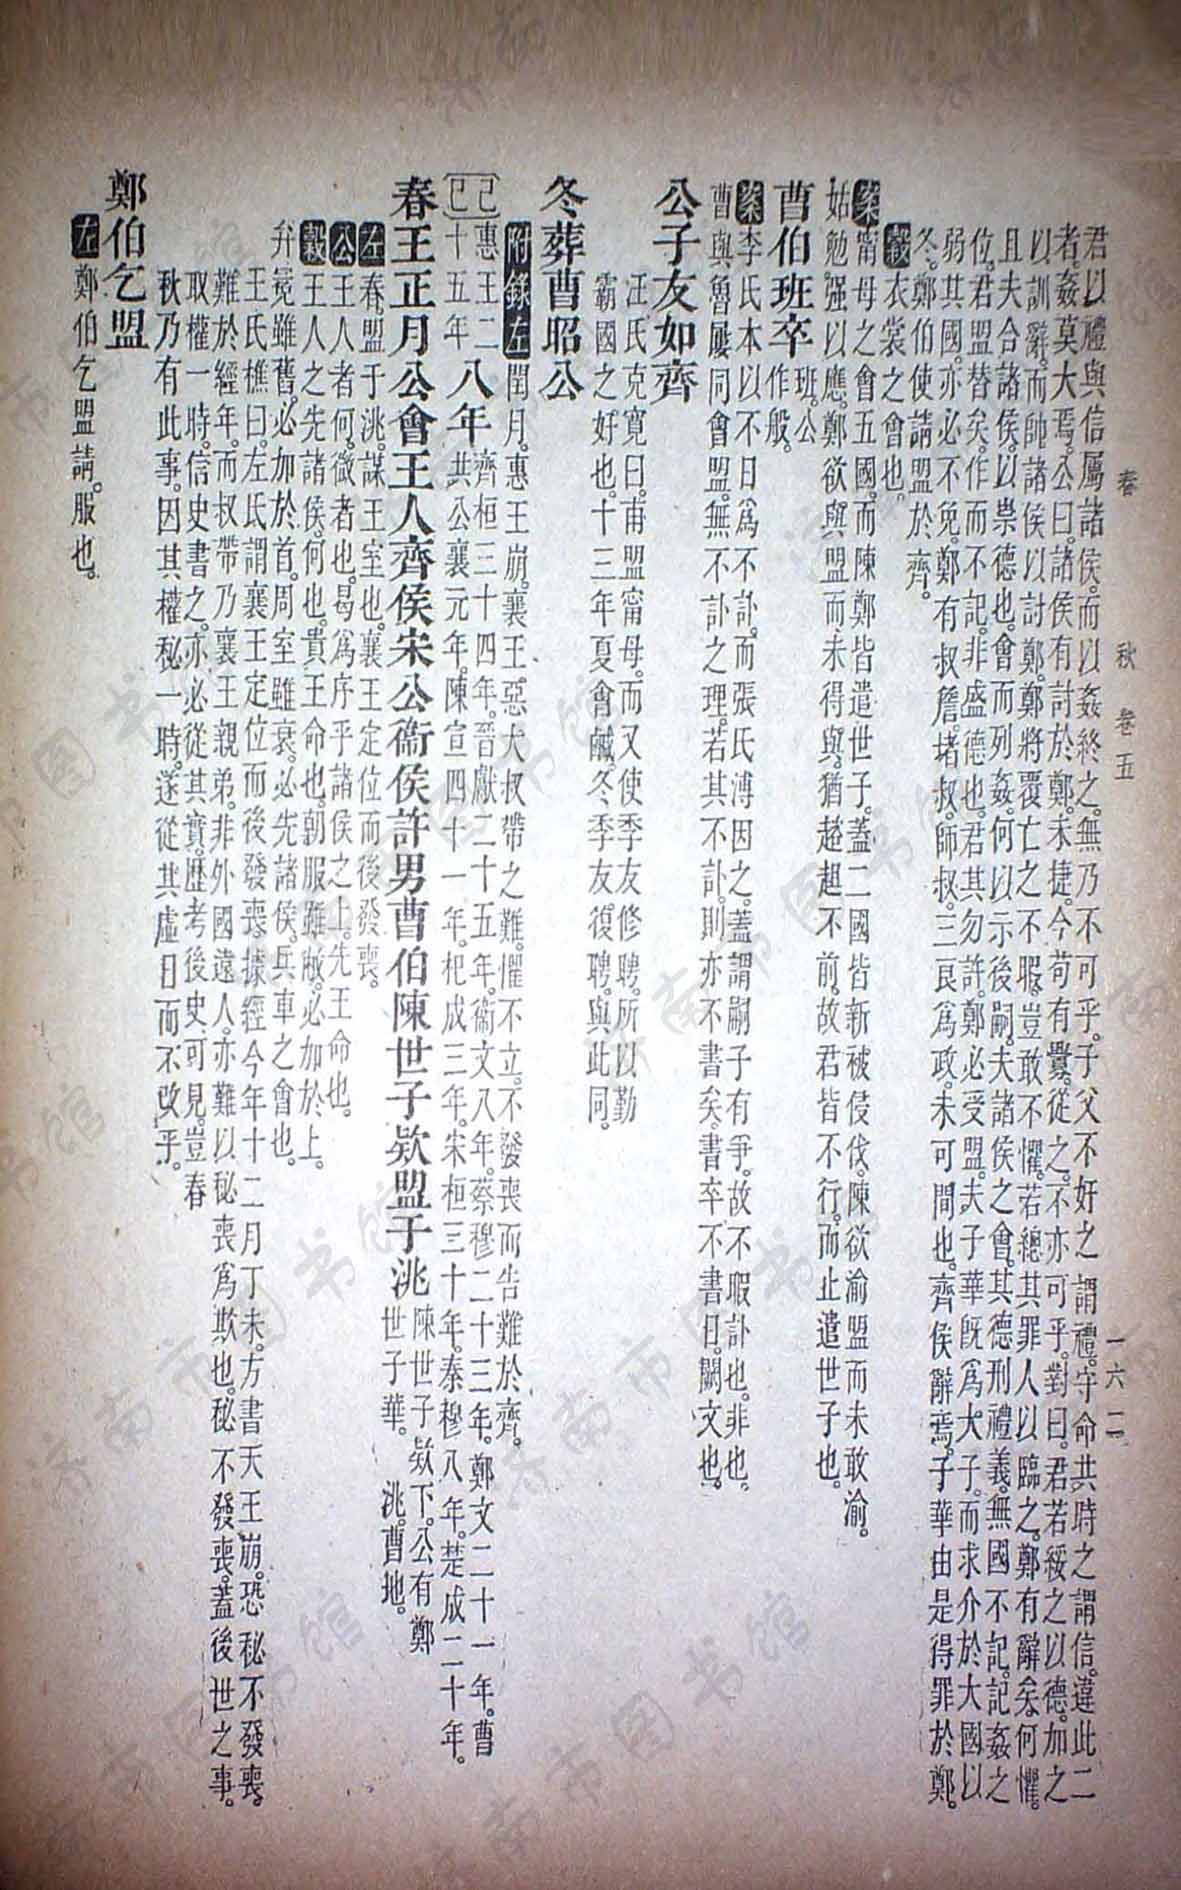 春　秋　卷五　一六二
君以禮與信屬諸侯。而以姦終之。無乃不可乎。子父不好之謂禮。守命共時之謂信。違此二
者。姦莫大焉。公曰。諸侯有討於鄭。未捷。今苟有釁。從之。不亦可乎。對曰。君若綏之以德。加之
以訓辭。而帥諸侯以討鄭。鄭將覆亡之不暇。豈敢不懼。若總其罪人以臨之。鄭有辭矣。何懼。
且夫合諸侯。以崇德也。會而列姦。何以示後嗣。夫諸侯之會。其德刑禮義。無國不記。記姦之
位。君盟替矣。作而不記。非盛德也。君其勿許。鄭必受盟。夫子華既爲大子。而求介於大國。以
弱其國。亦必不免。鄭有叔詹。堵叔。師叔。三良爲政。未可間也。齊侯辭焉。子華由是得罪於鄭。
冬。鄭伯使請盟於齊。
穀衣裳之會也。
案甯母之會五國。而陳鄭皆遣世子。蓋二國皆新被侵伐。陳欲渝盟而未敢渝。
姑勉强以應。鄭欲與盟而未得與。猶趑趄不前。故君皆不行。而止遣世子也。
曹伯班卒班。公
作般。
案李氏本以不日爲不訃。而張氏溥因之。蓋謂嗣子有爭。故不暇訃也。非也。
曹與魯屢同會盟。無不訃之理。若其不訃。則亦不書矣。書卒不書日。闕文也。
公子友如齊
汪氏克寬曰。甫盟甯母。而又使季友修聘。所以勤
霸國之好也。十三年夏會鹹。冬季友復聘。與此同。
冬葬曹昭公
附錄左閏月。惠王崩。襄王。惡大叔帶之難。懼不立。不發喪而告難於齊。
己巳惠王二十五年八年齊桓三十四年。晉獻二十五年。衞文八年。蔡穆二十三年。鄭文二十一年。曹
共公襄元年。陳宣四十一年。杞成三年。宋桓三十年。秦穆八年。楚成二十年。
春王正月公會王人齊侯宋公衞侯許男曹伯陳世子欵盟于洮陳世子欵下。公有鄭
世子華。　洮。曹地。
左春。盟于洮。謀王室也。襄王定位而後發喪。
公王人者何。微者也。曷爲序乎諸侯之上。先王命也。
穀王人之先諸侯。何也。貴王命也。朝服雖敝。必加於上。
弁冕雖舊。必加於首。周室雖衰。必先諸侯。兵車之會也。
王氏樵曰。左氏謂襄王定位而後發喪。據經今年十二月丁未。方書天王崩。恐秘不發喪。
難於經年。而叔帶乃襄王親弟。非外國遠人。亦難以秘喪爲欺也。秘不發喪。蓋後世之事。
取權一時。信史書之。亦必從其實。歷考後史。可見。豈春
秋乃有此事。因其權秘一時。遂從其虛日而不改乎。
鄭伯乞盟
左鄭伯乞盟。請服也。